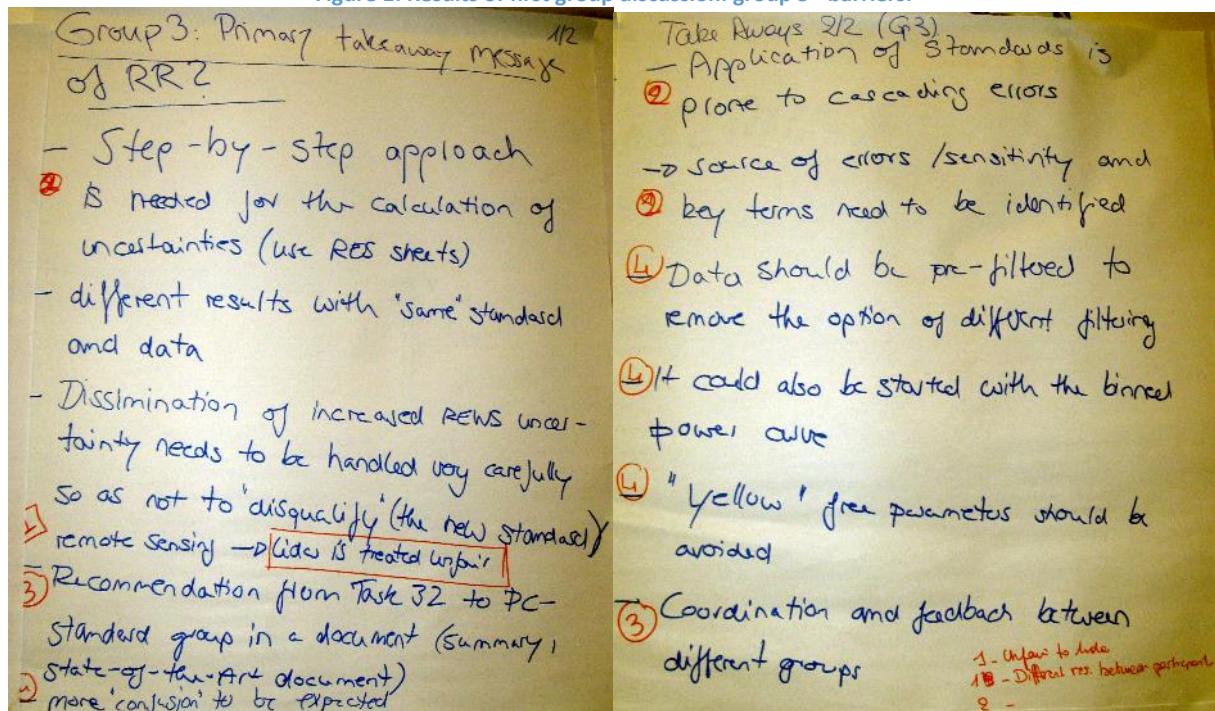 Group 3: Primary takeaway message 1/2
of RR?
- Step-by-step approach
2 is needed for the calculation of
uncertainties (use RES sheets)
- different results with "same" standard
and data
- Dissimination of increased REWS uncer-
tainty needs to be handled very carefully
so as not to 'disqualify' (the new standard)
1 remote sensing → Lidar is treated unfair
- Recommendation from Task 32 to PC-
3 standard group in a document (summary,
state-of-the-Art document)
- more 'confusion' to be expected
Take Aways 2/2 (G3)
- Application of standards is
2 prone to cascading errors
→ source of errors/sensitivity and
2 key terms need to be identified
4 Data should be pre-filtered to
remove the option of different filtering
4 It could also be started with the binned
power curve
4 "Yellow" free parameters should be
avoided
- Coordination and feedback between
3 different groups
1 - Unfair to lidar
1 - Different res. between participant
2 -